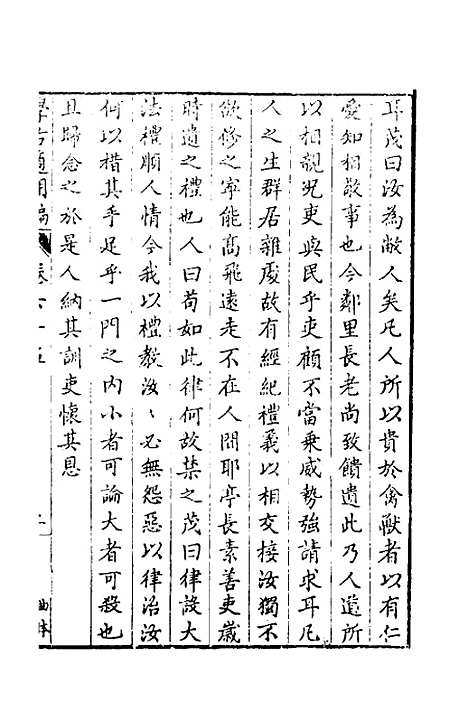 耳茂曰汝為敝人矣凡人所以貴於禽獸者以有仁
愛知相敬事也今鄰里長老尚致饋遺此乃人道所
以相親况吏與民乎吏顧不當乗威勢強請求耳凡
人之生群居雜處故有經紀禮義以相交接汝獨不
欲修之寧能髙飛遠走不在人間耶亭長素善吏歳
時遺之禮也人曰苟如此律何故禁之茂曰律設大
法禮順人情今我以禮教汝〻必無怨惡以律治汝
何以措其手足乎一門之内小者可論大者可殺也
且歸念之於是人納其訓吏懷其恩
學古適用編
卷六十五